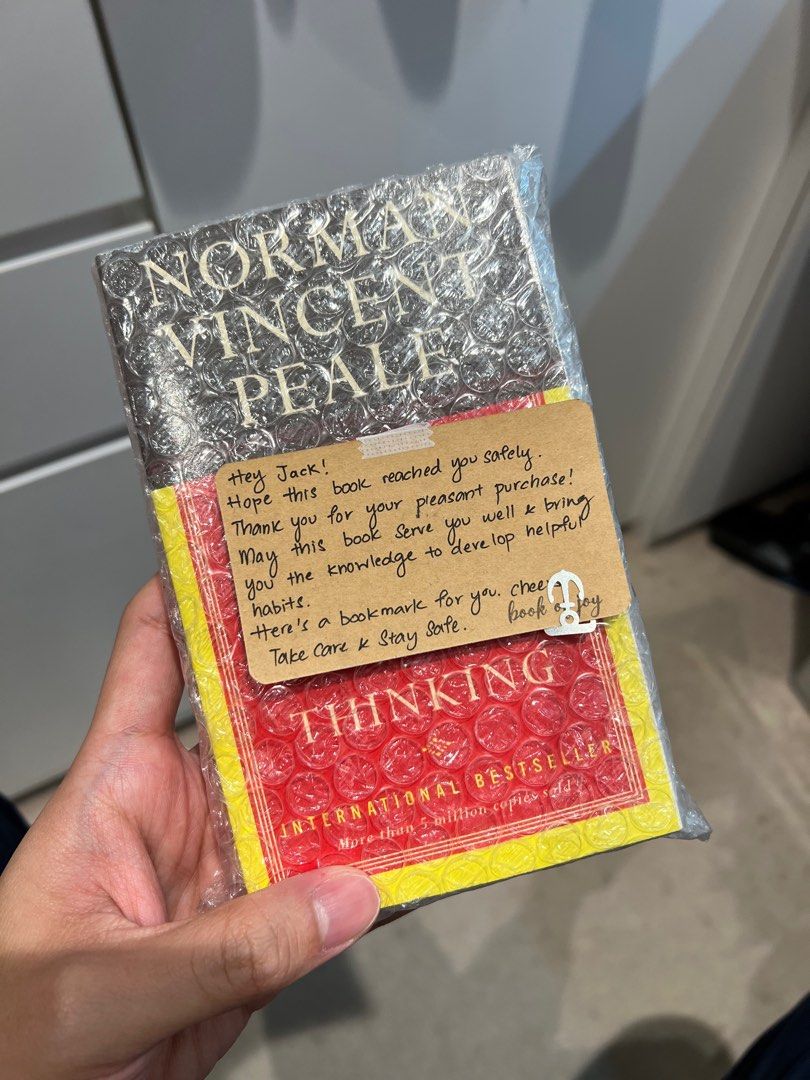 NORMAN
VINCENT
PEALE
Hey Jack!
Hope this book reached you safely.
Thank you for your pleasant purchase!
May this book serve you well & bring
you the knowledge to develop helpful
habits.
Here's a bookmark for you. chee
book of joy
Take Care & Stay Safe.
THINKING
INTERNATIONAL BESTSELLER
More than 5 million copies sold